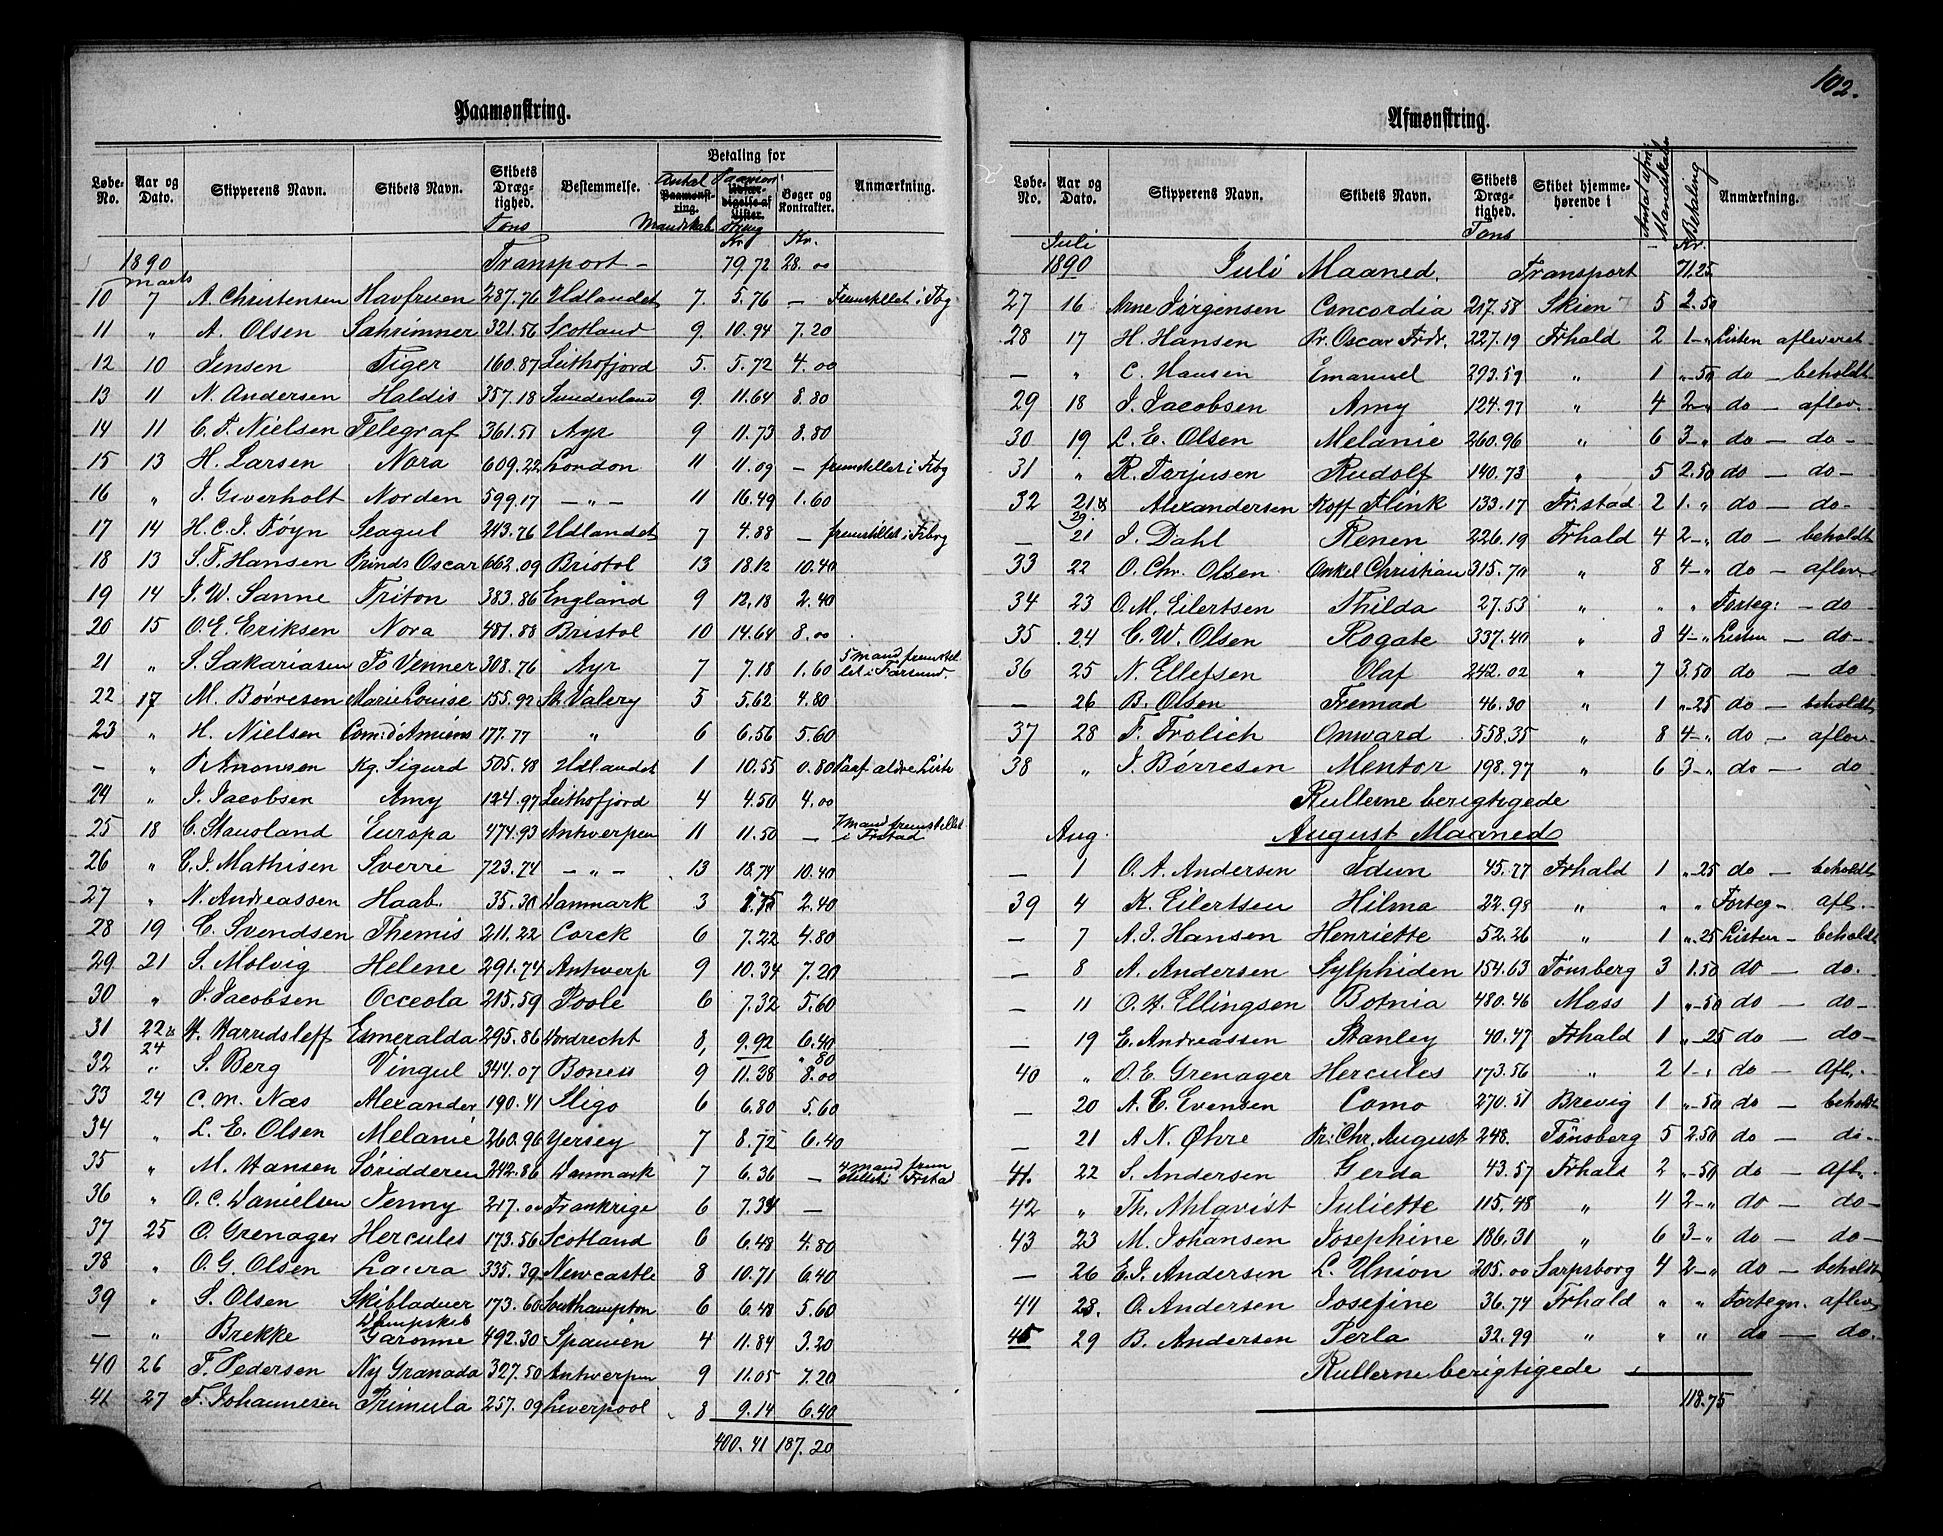 102.
Paamønstring.
Løbe-No. Aar og Dato. Skipperens Navn. Skibets Navn. Skibets Dræg-tighed. Tons Bestemmelse. Antal Paamønst-ring. Mandskab. Betaling for Paamønstring Udfær-digelse af Lister. Kr. Bøger og Kontrakter. Kr. Anmærkning.
1890 Transport - 79.72 28.00
marts
10 7 A. Christensen Havfruen 287.76 Udlandet 7. 5.76 — Fremstillet i Fbg
11 " A. Olsen Sahrimner 321.56 Scotland 9. 10.94 7.20
12 10 Jensen Tiger 160.87 Leithofjord 5. 5.72 4.00
13 11 N. Andersen Haldis 357.18 Sunderland 9. 11.64 8.80
14 11 C. F. Nielsen Telegraf 361.51 Ayr 9 11.73 8.80
15 13 H. Larsen Nora 609.22 London 11 11.09 — fremstillet i Fbg
16 " J. Giverholt Norden 599.17 — " — 11 16.49 1.60
17 14 H. C. J. Føyn Seagul 243.76 Udlandet 7 4.88 — fremstillet i Fbg
18 13 S. F. Hansen Prinds Oscar 662.09 Bristol 13 18.12 10.40
19 14 J. W. Sanne Triton 383.86 England 9 12.18 2.40
20 15 O. E. Eriksen Nora 481.88 Bristol 10 14.64 8.00
21 " S. Sakariasen To Venner 308.76 Ayr 7 7.18 1.60 5 mand fremstil-let i Farsund
22 17 M. Børresen Marie Louise 155.92 St. Valery 5 5.62 4.80
23 " H. Nielsen Com: d'Amiens 177.77 " 6 6.56 5.60
— " P. Aronsen Kg. Sigurd 505.48 Udlandet 1 10.55 0.80 Paaf. ældre Liste
24 " J. Jacobsen Amy 124.97 Leithofjord 4 4.50 4.00
25 18 C. Stausland Europa 474.93 Antverpen 11 11.50 — 7 mand fremstillet i Frstad
26 " C. J. Mathisen Sverri 723.74 — " — 13 18.74 10.40
27 " N. Andreassen Haab. 35.30 Danmark 3 1.75 2.40
28 19 C. Svendsen Themis 211.22 Corck 6 7.22 4.80
29 21 S. Molvig Helene 291.74 Antwerp 9 10.34 7.20
30 " J. Jacobsen Occeola 215.59 Poole 6 7.32 5.60
31 22 & 24 H. Harridsleff Esmeralda 295.86 Dordrecht 8, 9.92 6.40 " 80
32 " S. Berg Vingul 344.07 Boness 9 11.38 8.00
33 24 C. M. Næs Alexander 190.41 Sligo 6 6.80 5.60
34 " L. E. Olsen Melanie 260.96 Yersey 7 8.72 6.40
35 " M. Hansen Søridderen 242.86 Danmark 7 6.36 — 4 mand frem stillet i Frstad
36 " O. C. Danielsen Jenny 217.00 Frankrige 6 7.34 —
37 25 O. Grenager Hercules 173.56 Scotland 6 6.48 4.80
38 " O. G. Olsen Laura 335.39 Newcastle 8 10.71 6.40
39 " S. Olsen Skibladner 173.60 Southampton 6 6.48 5.60
— " Brekke Dampskib Garonne 492.30 Spanien 4 11.84 3.20
40 26 F. Pedersen Ny Granada 327.50 Antverpen 9 11.05 7.20
41 27 F. Johannesen Primula 257.09 Liverpool 8 9.14 6.40
400.41 187.20
Afmønstring.
Løbe-No. Aar og Dato. Skipperens Navn. Skibets Navn. Skibets Dræg-tighed. Tons Skibet hjemme-hørende i Antal afm: Mandskaber Betaling Kr. Anmærkning.
Juli
1890 Juli Maaned. Transport 71.25
27 16 Arne Jørgensen Concordia 217.58 Skien 5 2.50
28 17 H. Hansen Pr. Oscar Frdr. 227.19 Frhald 2 1-" Listen afleveret
— " C. Hansen Emanuel 293.59 " 1 "-50 do — beholdt
29 18 J. Jacobsen Amy 124.97 " 4 2-" do — aflev.
30 19 L. E. Olsen Melanie 260.96 " 6 3-" do — do —
31 " R. Tarjusen Rudolf 140.73 " 5 2.50 do — do —
32 21 & 29. Alexandersen Koff Flink 133.17 Fr.stad 2 1." do — do —
— 21 J. Dahl Renen 226.19 Frhald 4 2-" do — beholdt
33 22 O. Chr. Olsen Onkel Christian 315.70 " 8 4-" do — aflev.
34 23 O. M. Eilertsen Thilda 27.53 " " " Forteg: — do —
35 24 C. W. Olsen Rogate 337.40 " 8 4-" Listen — do —
36 25 N. Ellefsen Olaf 242.02 " 7 3.50 do — do
— 26 B. Olsen Fremad 46.30 " 1 "-25 do — beholdt
37 28 F. Frølich Onward 558.35 " 8 4-" do — aflev.
38 " J. Børresen Mentor 198.97 " 6 3-" do — do
Rullerne berigtigede
Aug. August Maaned
— 1 O. A. Andersen Idun 45.77 Frhald 1 "-25 do — beholdt
39 4 K. Eilertsen Hilma 22.98 " " " Forteg — afl.
— 7 A. J. Hansen Henriette 52.26 " 1 "-25 Listen — beholdt
— 8 A. Andersen Sylphiden 154.63 Tønsberg 3 1.50 do — do.
— 11 O. H. Ellingsen Botnia 480.46 Moss 1 "-50 do — do —
— 19 E. Andreassen Stanley 40.47 Frhald 1 "-25 do — do —
40 " O. E. Grenager Hercules 173.56 " 2 1-" do — Afl.
— 20 A. C. Evensen Como 270.51 Brevig 1 "-50 do — beholdt
— 21 A. N. Øhre Pr: Chr. August 248. Tønsberg 5 2.50 do — do
41. 22 S. Andersen Gerda 43.57 Frhald 2 "-50 do — Afl.
42 " Th. Ahlqvist Juliette 115.48 " 4 2-" do — do —
43 23 M. Johansen Josephine 186.31 " 6 3-" do — do —
— 26 E. J. Andersen L. Union 205.00 Sarpsborg 4 2-" do — beholdt
44 28. O. Andersen Josefine 36.74 Frhald " " Fortegn. aflev.
45 29 B. Andersen Perla 32.99 " " " do — do.
Rullerne berigtigede
118.75